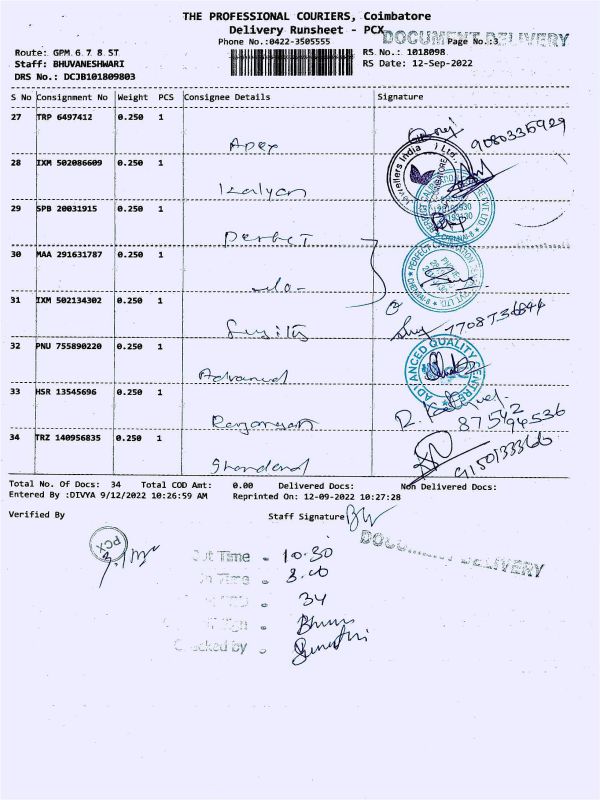 THE PROFESSIONAL COURIERS, Coimbatore
Delivery Runsheet - PCX
DOCUMENT DELIVERY
Phone No.:0422-3505555
Page No.:3
Route: GPM.6.7.8.ST
RS No.: 1018098
Staff: BHUVANESHWARI
RS Date: 12-Sep-2022
DRS No.: DCJB101809803
S No Consignment No Weight PCS Consignee Details Signature
27 TRP 6497412 0.250 1
Apex
28 IXM 502086609 0.250 1
Kalyan
29 SPB 20031915 0.250 1
Perfect
30 MAA 291631787 0.250 1
-do-
31 IXM 502134302 0.250 1
32 PNU 755890220 0.250 1
ADVANCED QUALITY CENTRE
Advanced
33 HSR 13545696 0.250 1
34 TRZ 140956835 0.250 1
9150133366
Standard
Total No. Of Docs: 34 Total COD Amt: 0.00 Delivered Docs: Non Delivered Docs:
Entered By :DIVYA 9/12/2022 10:26:59 AM Reprinted On: 12-09-2022 10:27:28
Verified By Staff Signature
DOCUMENT DELIVERY
PCX
Out Time - 10.30
In Time - 3.00
34
Sign
Checked by